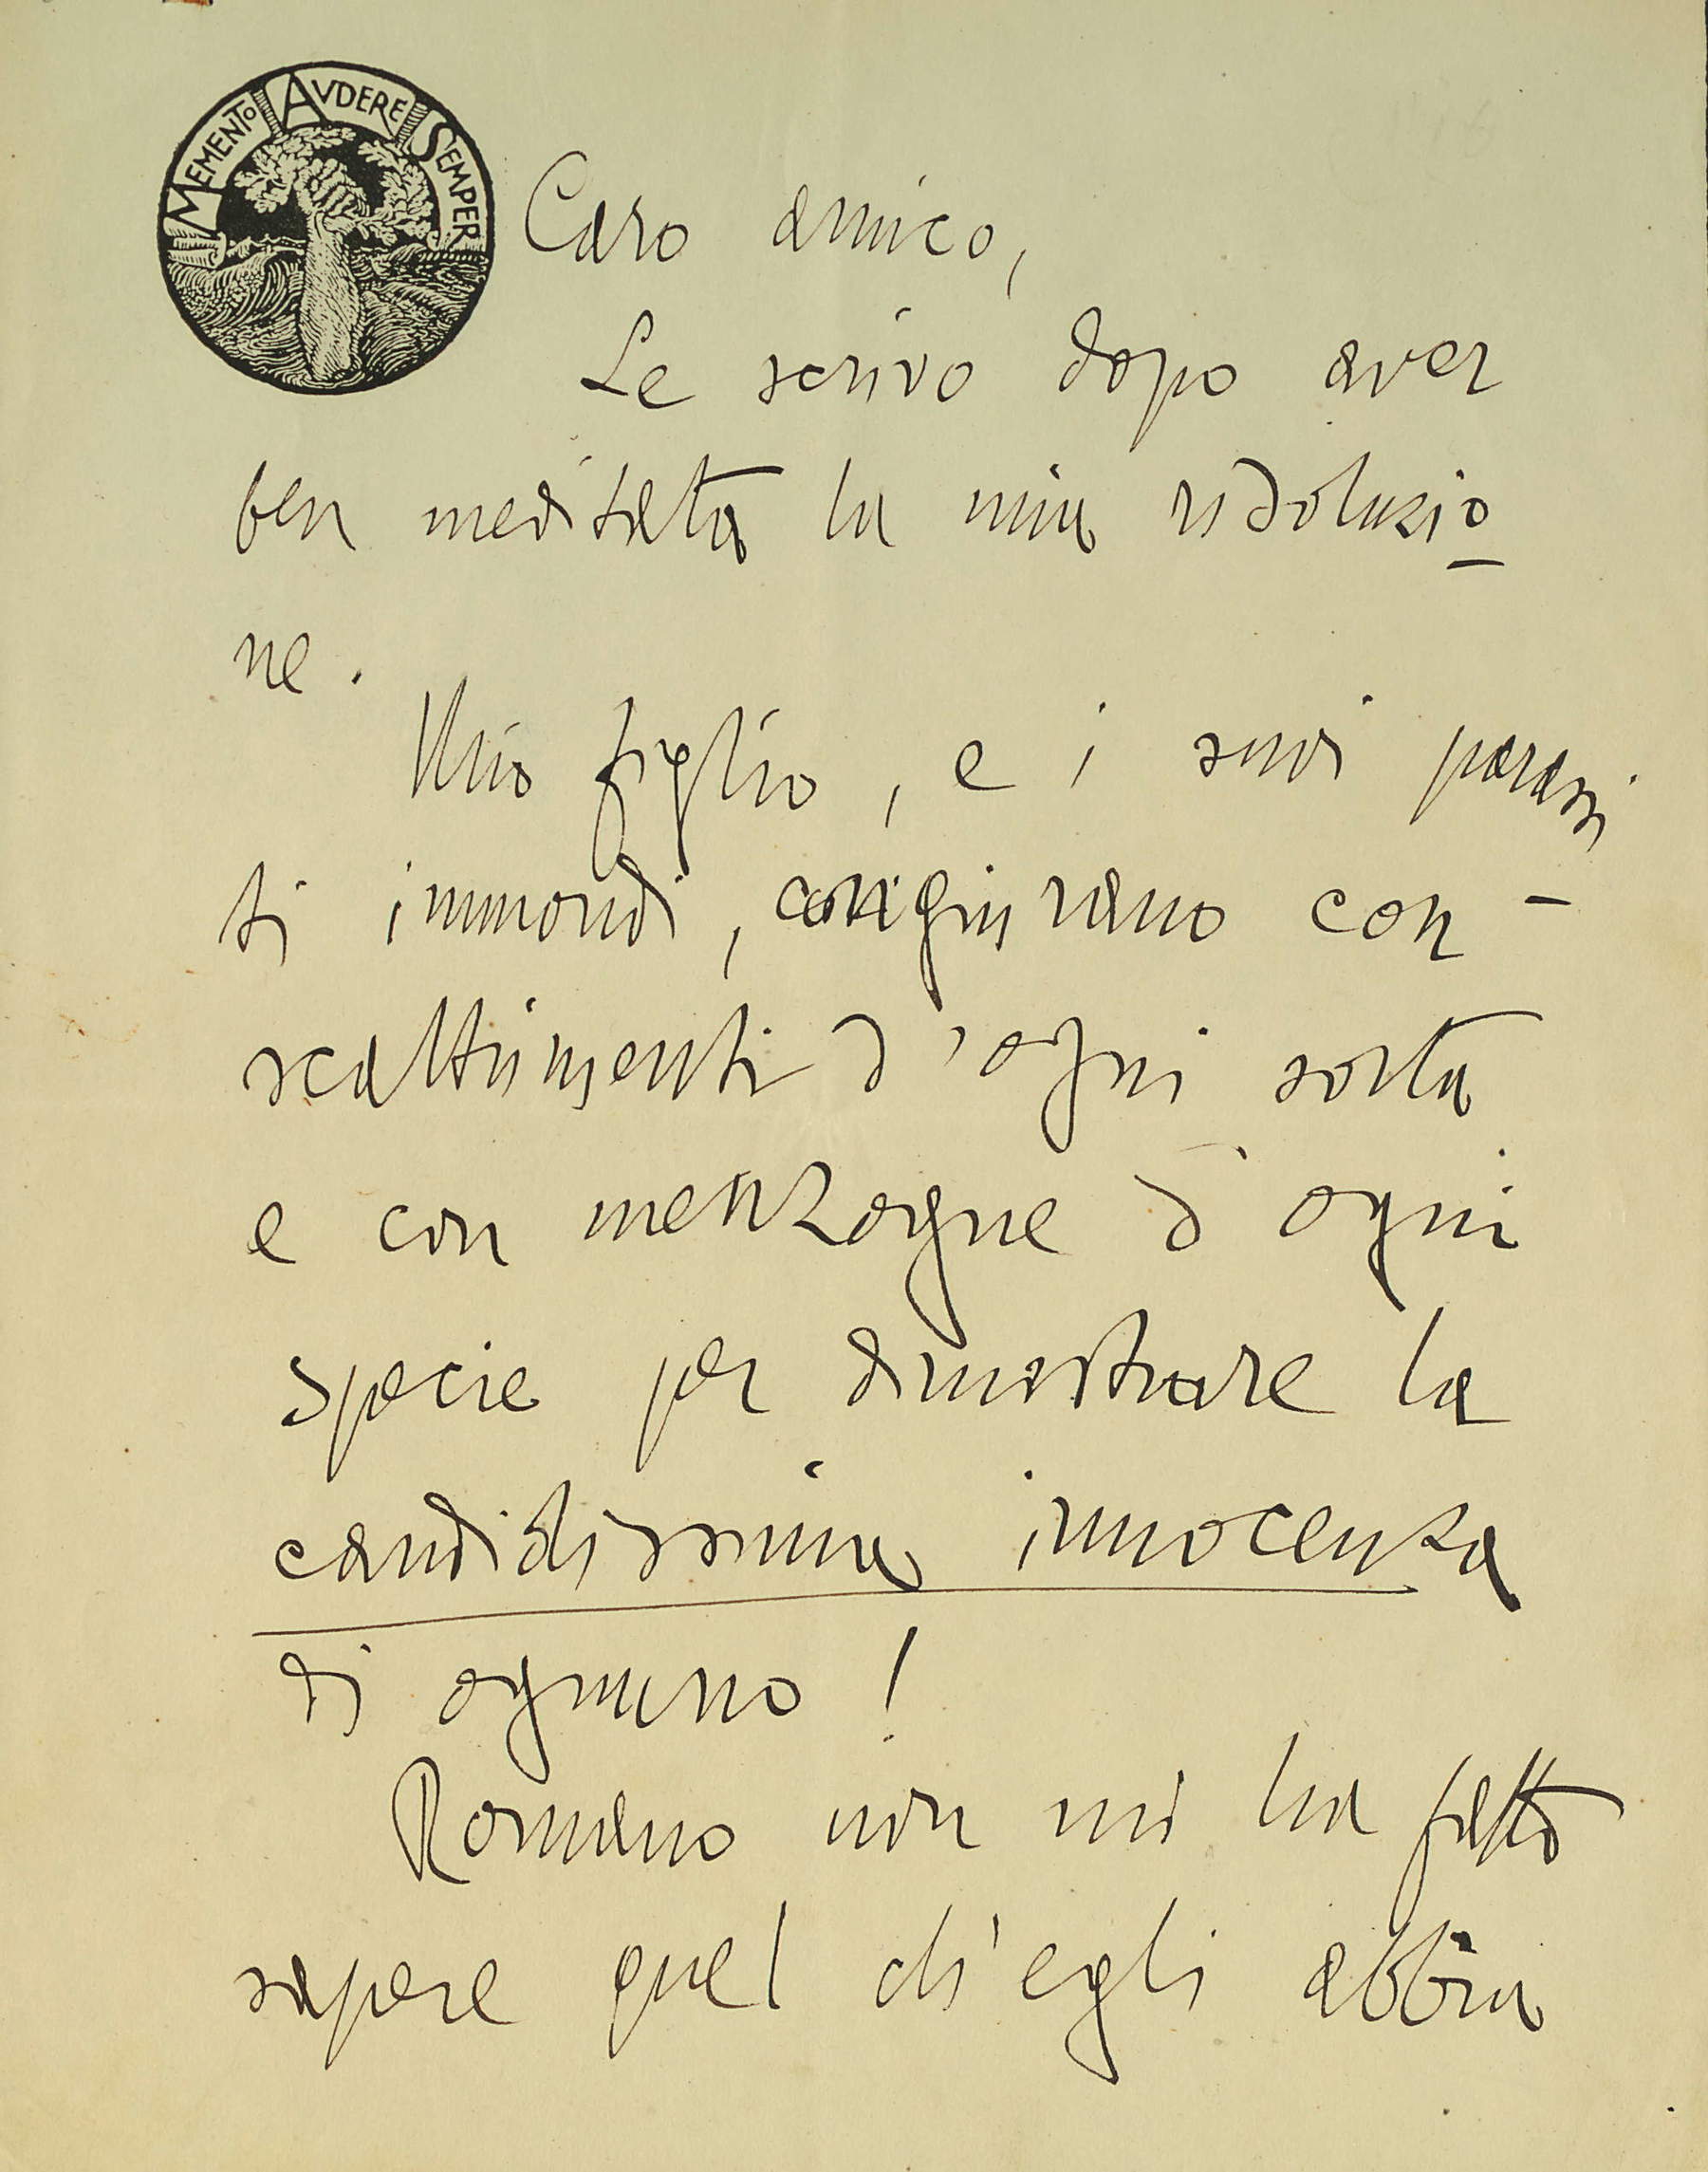 MEMENTO AVDERE SEMPER
Caro amico,
Le scrivo dopo aver
ben meditata la mia risoluzio
ne.
Mio figlio, e i suoi parassi
ti immondi, congiurano con -
scaltrimenti d'ogni sorta
e con menzogne d'ogni
specie per dimostrare la
candidissima innocenza
di ognuno!
Romano non mi ha fatto
sapere quel ch'egli abbia